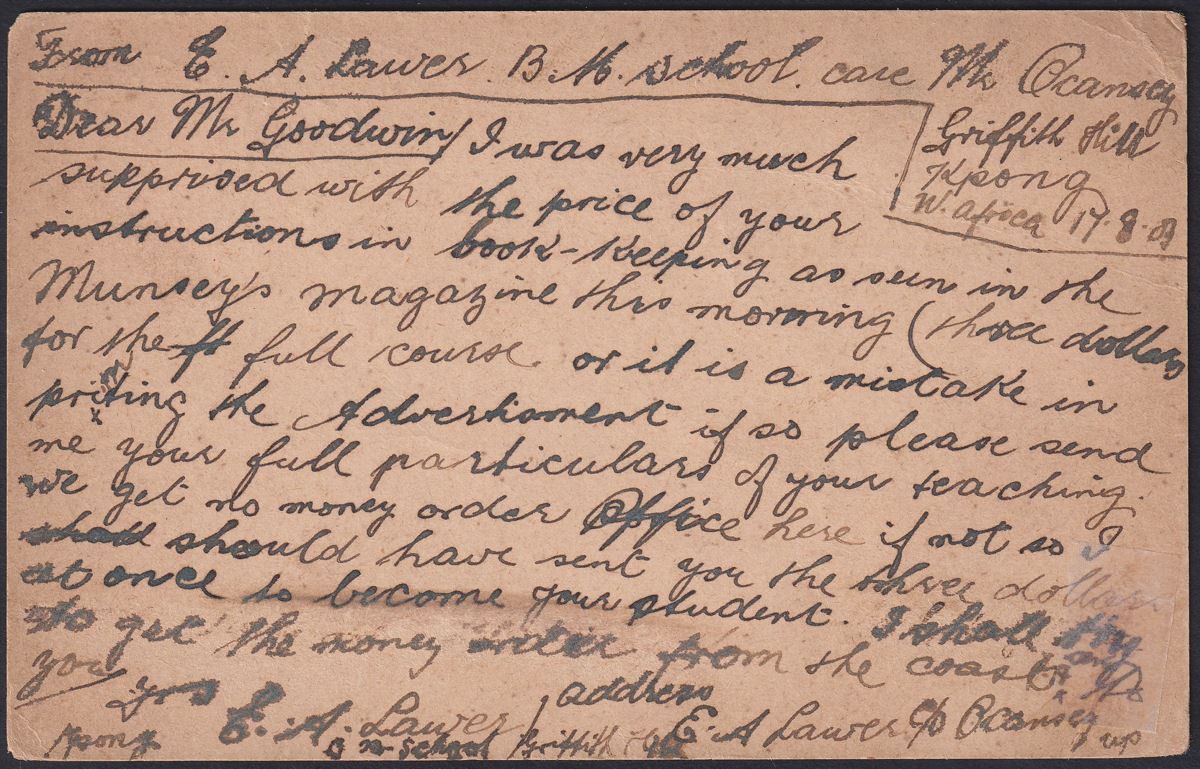 From E. A. Lawer B. M. School. care Mr Ocansey
Griffith Hill
Kpong
W. Africa 17.8.03
Dear Mr Goodwin/ I was very much
supprised with the price of your
instructions in book-keeping as seen in the
Munsey's magazine this morning (three dollars
for the ft full course or it is a mistake in
priting the Advertisment if so please send
me your full particulars of your teaching.
We get no money order Office here if not so I
shall should have sent you the three dollars
at once to become your student. I shall try
to get the money order from the coast and to
you
yrs E. A. Lawer / address E. A Lawer c/o Ocansey
Kpong B m School Griffith Hill